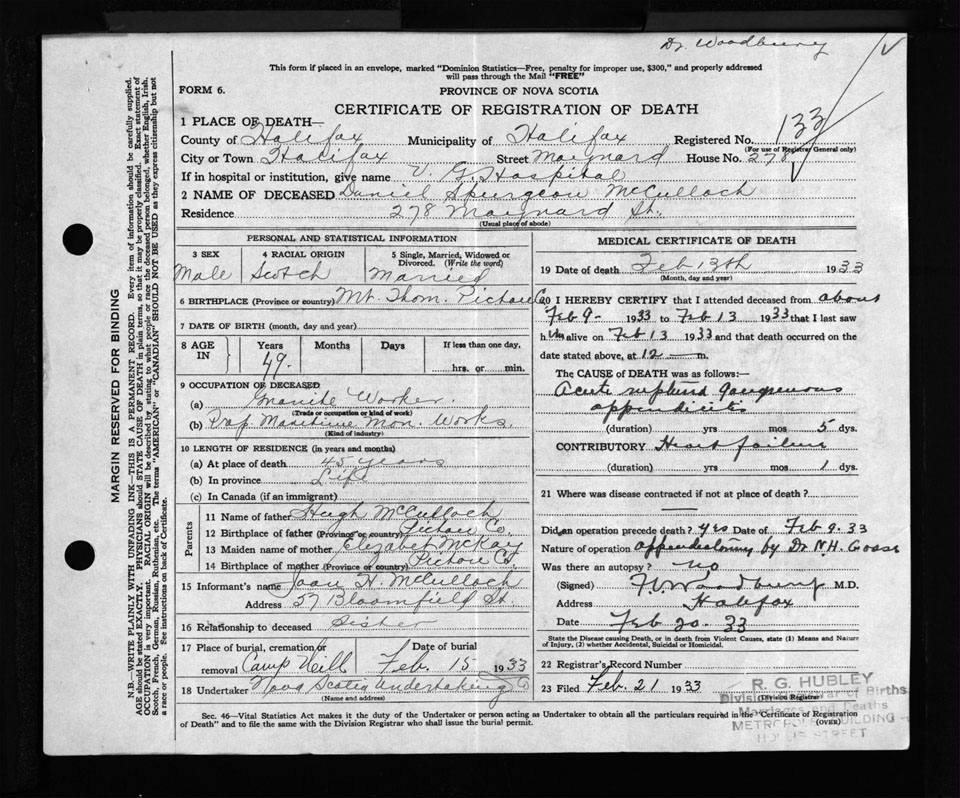 Dr. Woodbury
This form if placed in an envelope, marked "Dominion Statistics—Free, penalty for improper use, $300," and properly addressed
will pass through the Mail "FREE"
FORM 6.
PROVINCE OF NOVA SCOTIA
CERTIFICATE OF REGISTRATION OF DEATH
1 PLACE OF DEATH—
County of Halifax Municipality of Halifax Registered No. 133
(For use of Registrar General only)
City or Town Halifax Street Maynard House No. 278
If in hospital or institution, give name V. G. Hospital
2 NAME OF DECEASED Daniel Spurgeon McCulloch
Residence 278 Maynard St.
(Usual place of abode)
MARGIN RESERVED FOR BINDING
N.B.—WRITE PLAINLY WITH UNFADING INK—THIS IS A PERMANENT RECORD. Every item of information should be carefully supplied.
AGE should be stated EXACTLY. PHYSICIANS should STATE CAUSE OF DEATH in plain terms, so that it may be properly classified. Exact statement of
OCCUPATION is very important. RACIAL ORIGIN will be described by stating to what people or race the deceased person belonged, whether English, Irish,
Scotch, French, German, Russian, Ruthenian, etc. The terms "AMERICAN" or "CANADIAN" SHOULD NOT BE USED as they express citizenship but not
a race or people. See instructions on back of Certificate.
PERSONAL AND STATISTICAL INFORMATION
3 SEX
Male
4 RACIAL ORIGIN
Scotch
5 Single, Married, Widowed or
Divorced. (Write the word)
Married
6 BIRTHPLACE (Province or country) Mt. Thom. Pictou Co
7 DATE OF BIRTH (month, day and year)
8 AGE
IN
Years
49.
Months
Days
If less than one day,
hrs. or min.
9 OCCUPATION OF DECEASED
(a) Granite Worker.
(Trade or occupation or kind of work)
(b) Prop. Maritime Mon. Works.
(Kind of industry)
10 LENGTH OF RESIDENCE (in years and months)
(a) At place of death 45 years
(b) In province Life
(c) In Canada (if an immigrant)
Parents
11 Name of father Hugh McCulloch
12 Birthplace of father (Province or country) Pictou Co.
13 Maiden name of mother Elezabet McKay
14 Birthplace of mother (Province or country) Pictou Co.
15 Informant's name Joan H. McCulloch
Address 57 Bloomfield St.
16 Relationship to deceased Sister
17 Place of burial, cremation or
removal Camp Hill
Date of burial
Feb. 15 1933
18 Undertaker Nova Scotia Undertaking Co
(Name and address)
MEDICAL CERTIFICATE OF DEATH
19 Date of death Feb 13th 1933
(Month, day and year)
20 I HEREBY CERTIFY that I attended deceased from about
Feb 9- 1933 to Feb 13 1933 that I last saw
him alive on Feb 13 1933 and that death occurred on the
date stated above, at 12 — m.
The CAUSE of DEATH was as follows:—
Acute ruptured gangrenous
appendicitis
(duration) yrs mos 5 dys.
CONTRIBUTORY Heart failure
(duration) yrs mos 1 dys.
21 Where was disease contracted if not at place of death?
Did an operation precede death? Yes Date of Feb 9. 33
Nature of operation appendectomy by Dr. N.H. Gosse
Was there an autopsy? no
(Signed) Woodbury M.D.
Address Halifax
Date Feb 20. 33
State the Disease causing Death, or in death from Violent Causes, state (1) Means and Nature
of Injury, (2) whether Accidental, Suicidal or Homicidal.
22 Registrar's Record Number
23 Filed Feb. 21 1933
(Division Registrar)
R. G. HUBLEY
Division Registrar of Births
Marriages and Deaths
METROPOLE BUILDING
HOLLIS STREET
Sec. 46—Vital Statistics Act makes it the duty of the Undertaker or person acting as Undertaker to obtain all the particulars required in the "Certificate of Registration
of Death" and to file the same with the Division Registrar who shall issue the burial permit.
(OVER)